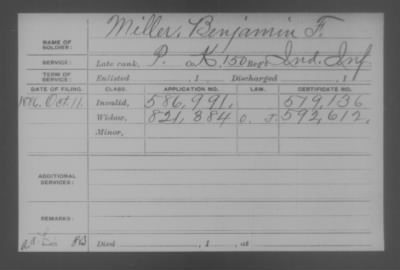 NAME OF SOLDIER: Miller, Benjamin F.
SERVICE: Late rank, P. Co. K, 150 Reg't Ind. Inf
TERM OF SERVICE: Enlisted , 1 Discharged , 1
DATE OF FILING. CLASS. APPLICATION NO. LAW. CERTIFICATE NO.
1886, Oct. 11. Invalid, 586,991, 579,136
Widow, 821,384 O. J. 592,612,
Minor,
ADDITIONAL SERVICES:
REMARKS:
Died , 1 , at